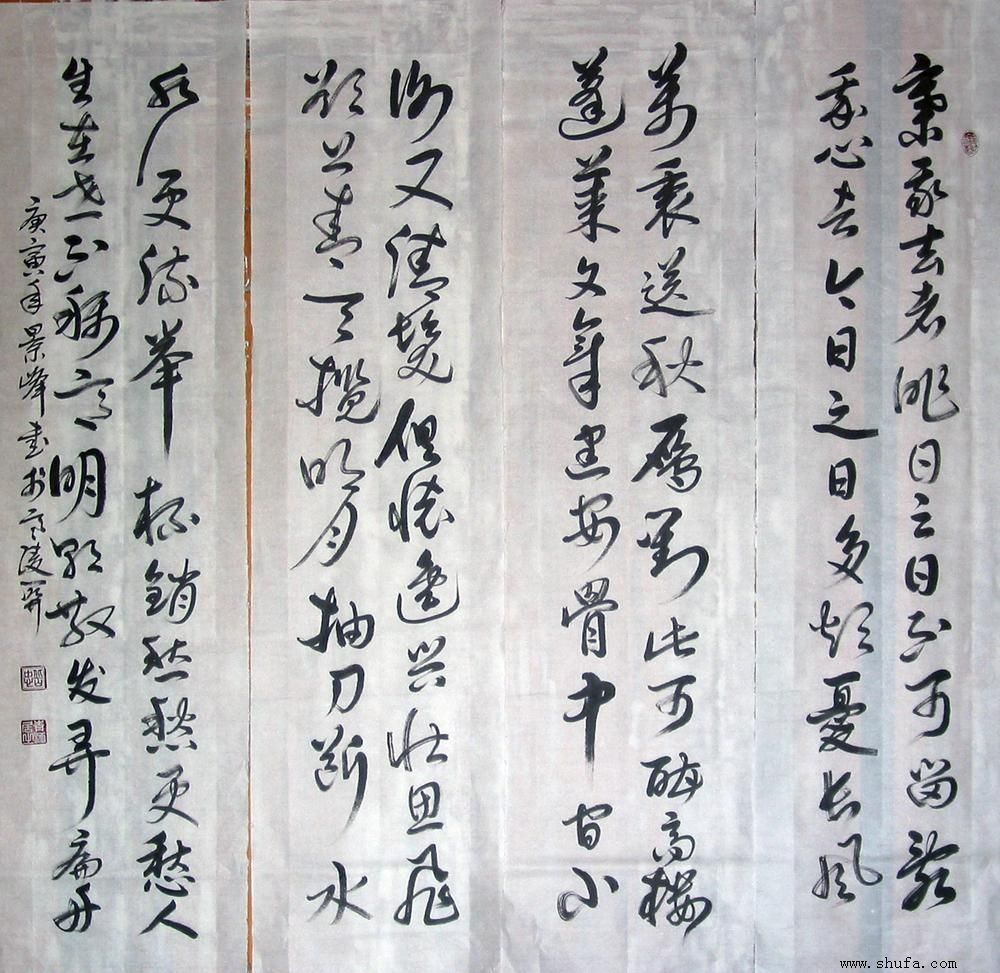 棄我去者昨日之日不可留亂
我心者今日之日多煩憂長風
萬裏送秋雁對此可酣高樓
蓬萊文章建安骨中间小
謝又清髮俱懷逸興壯思飛
欲上青天攬明月抽刀斷水
水更流舉杯銷愁愁更愁人
生在世不稱意明朝散发弄扁舟
庚寅年景峰書於高陵
www.shufa.com